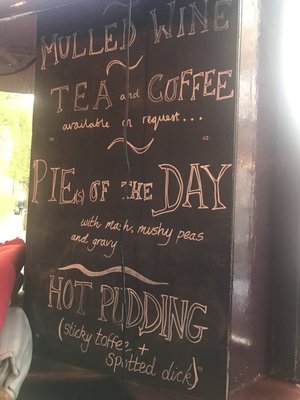 MULLED WINE
TEA and COFFEE
available on request...
PIE(s) OF THE DAY
with mash, mushy peas
and gravy
HOT PUDDING
(sticky toffee +
spotted dick)